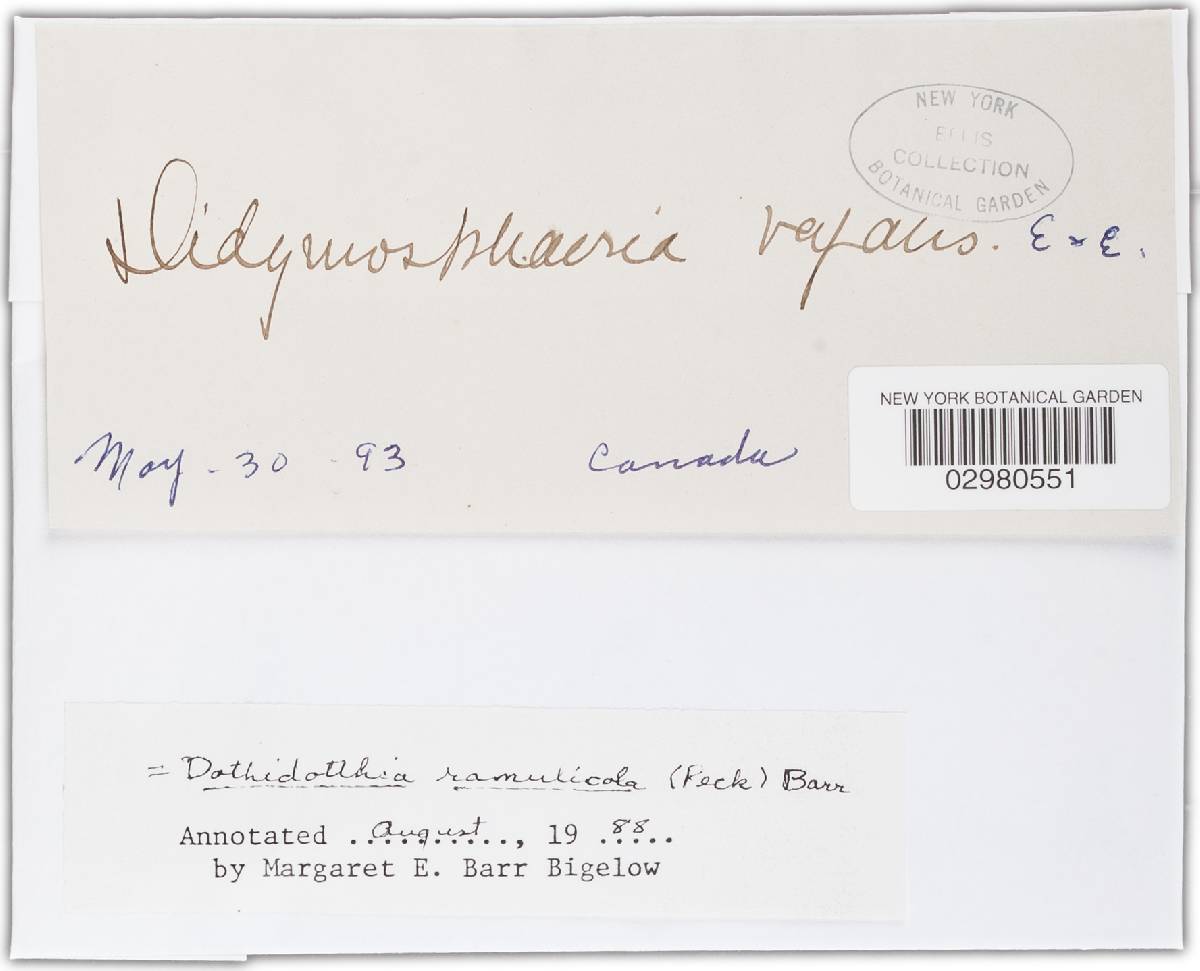 NEW YORK
ELLIS
COLLECTION
BOTANICAL GARDEN
Didymosphaeria E & E.
NEW YORK BOTANICAL GARDEN
02980551
May - 30 - 93 Canada
= Dothidotthia ramulicola (Peck) Barr
Annotated ..August.., 19 .88..
by Margaret E. Barr Bigelow